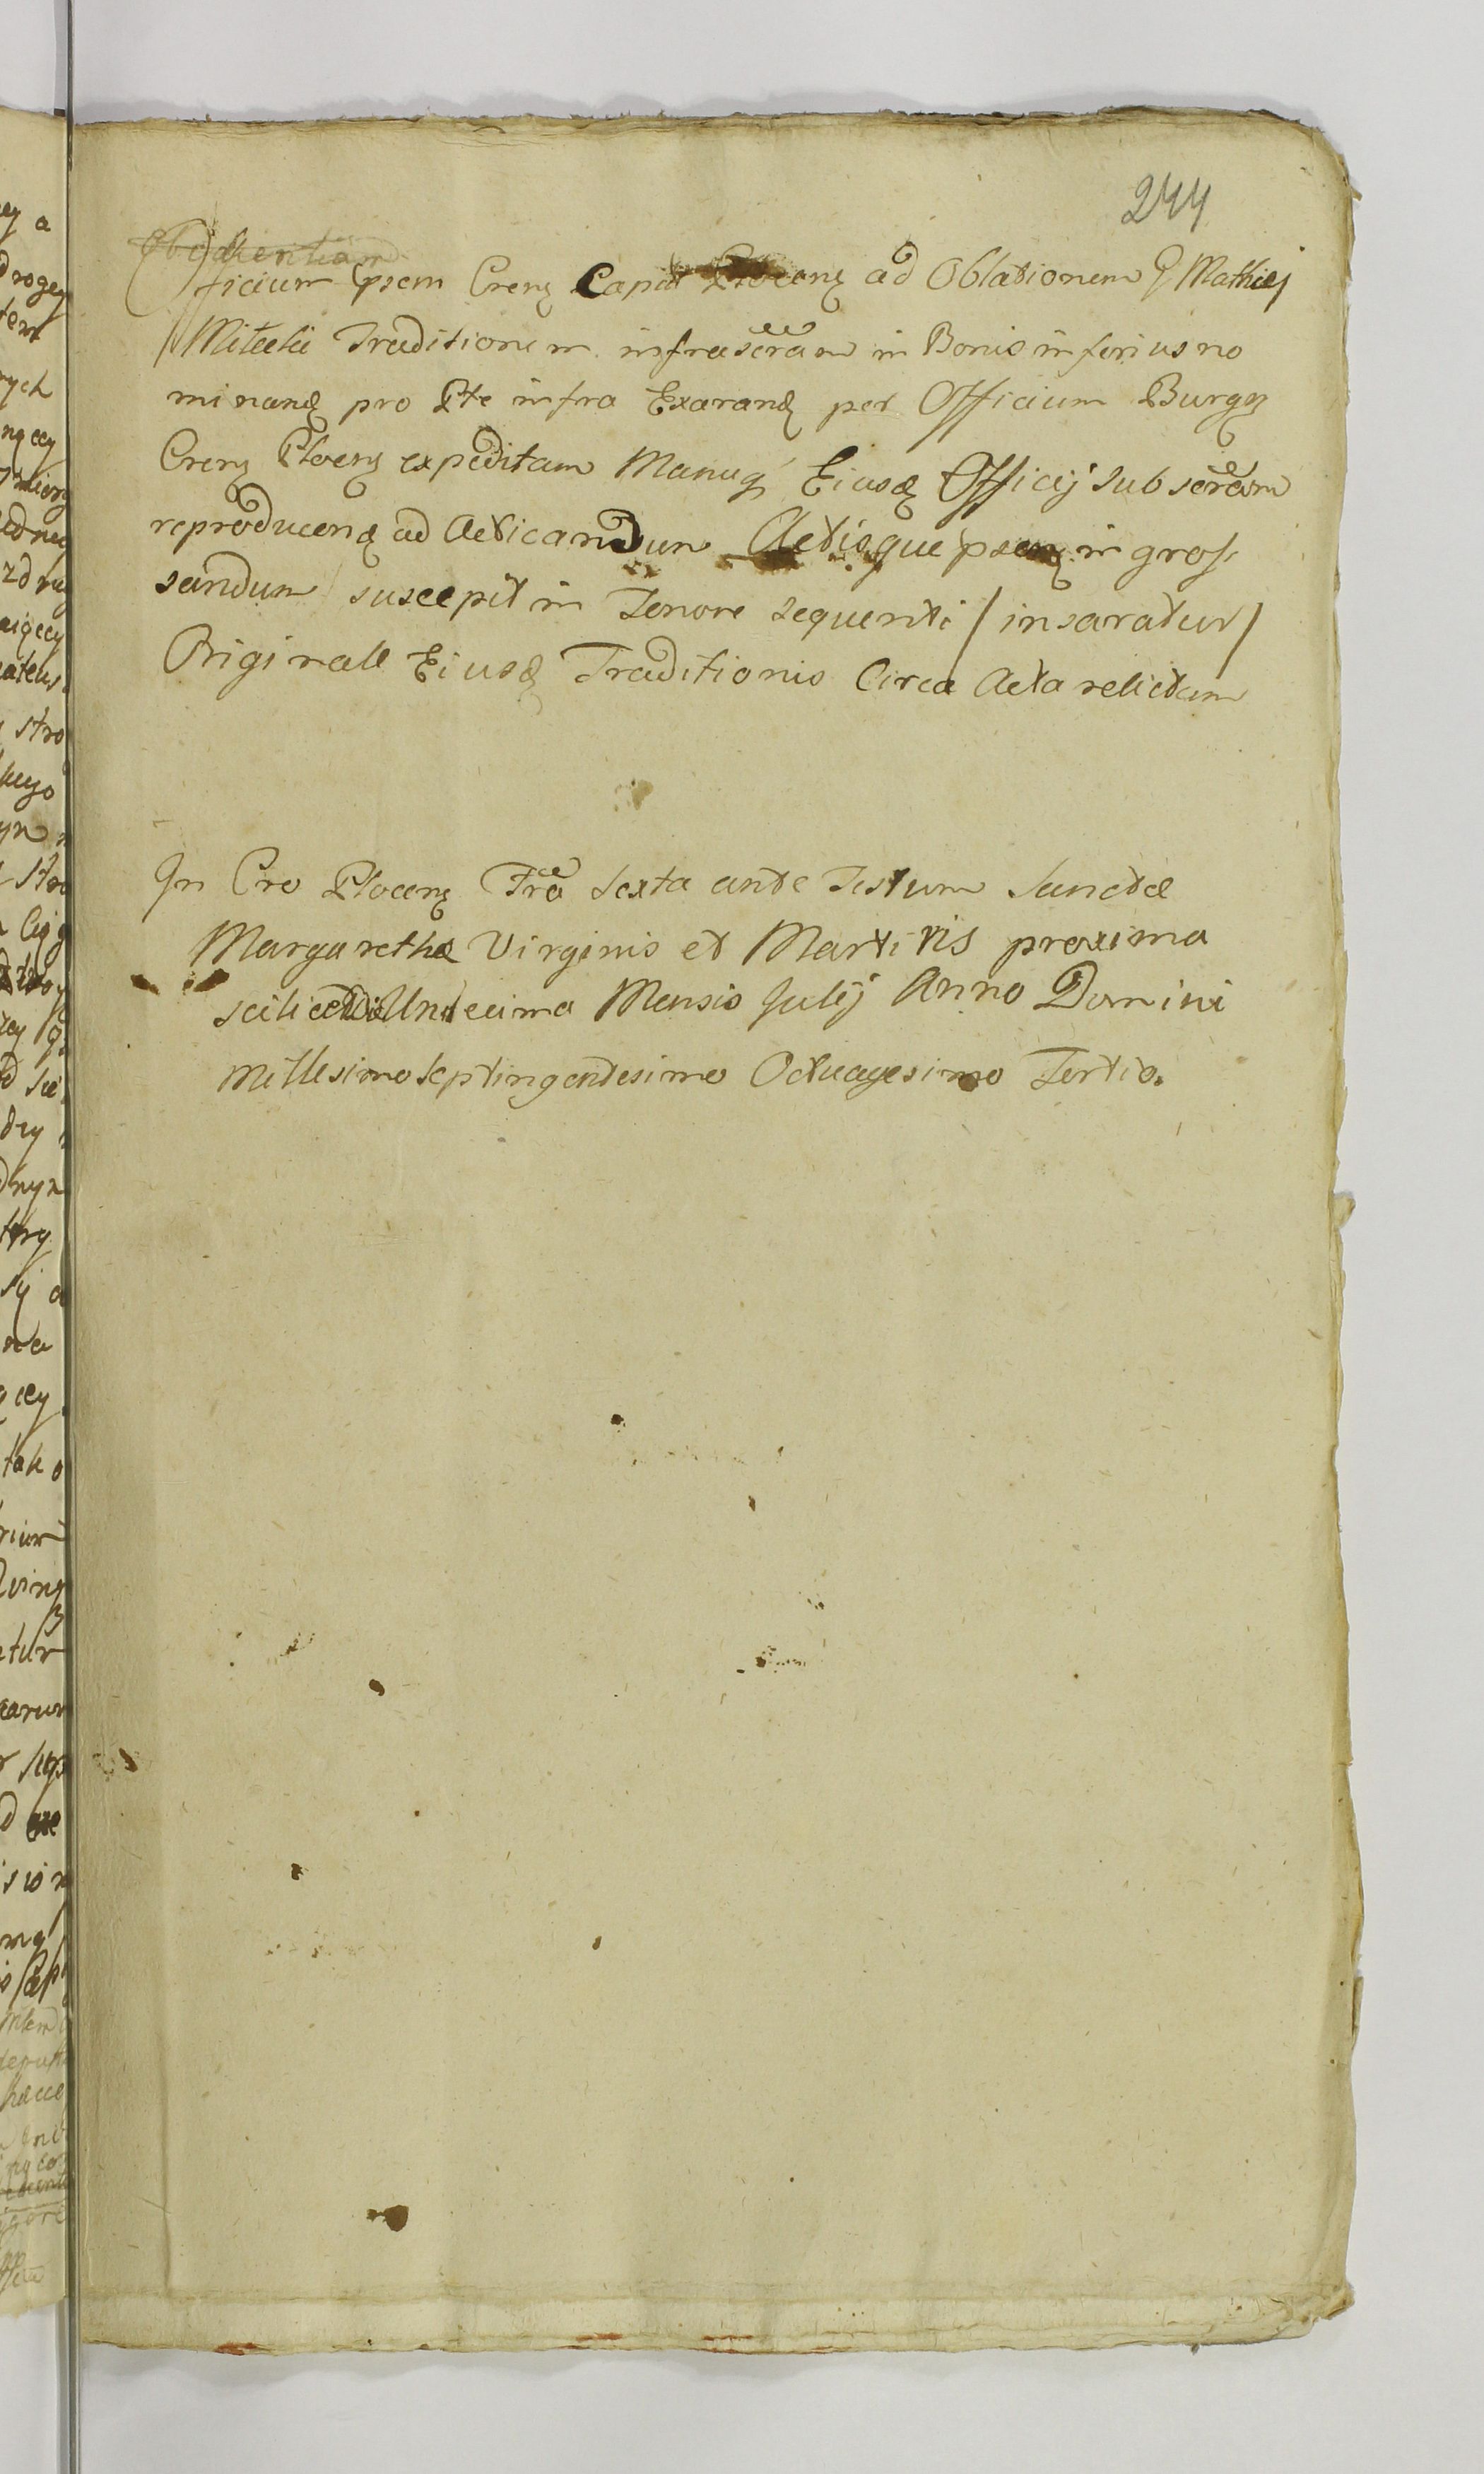 244
Obedientiam
Officium psem Crenꝫ Capit Plocenꝫ ad Oblationem G Mathiej
Mitecki Traditionem infrascram in Bonis inferius no
minanꝫ pro Pte infra Exaranꝫ per Officium Burgꝫ
Crenꝫ Plocenꝫ expeditam Manuq Eiusꝫ Officij subscram
reproducenꝫ ad Acticandum Actisque psenꝫ ingros
sandum suscepit in Tenore sequenti / insaratur /
Originale Eiusꝫ Traditionis Circa Acta relictam
In Cro Plocenꝫ Fra sexta ante Festum Sanctæ
Margarethæ Virginis et Martiris proxima
scilicet Die Undecima Mensis Julij Anno Domini
Millesimo Septingentesimo Octuagesimo Tertio.